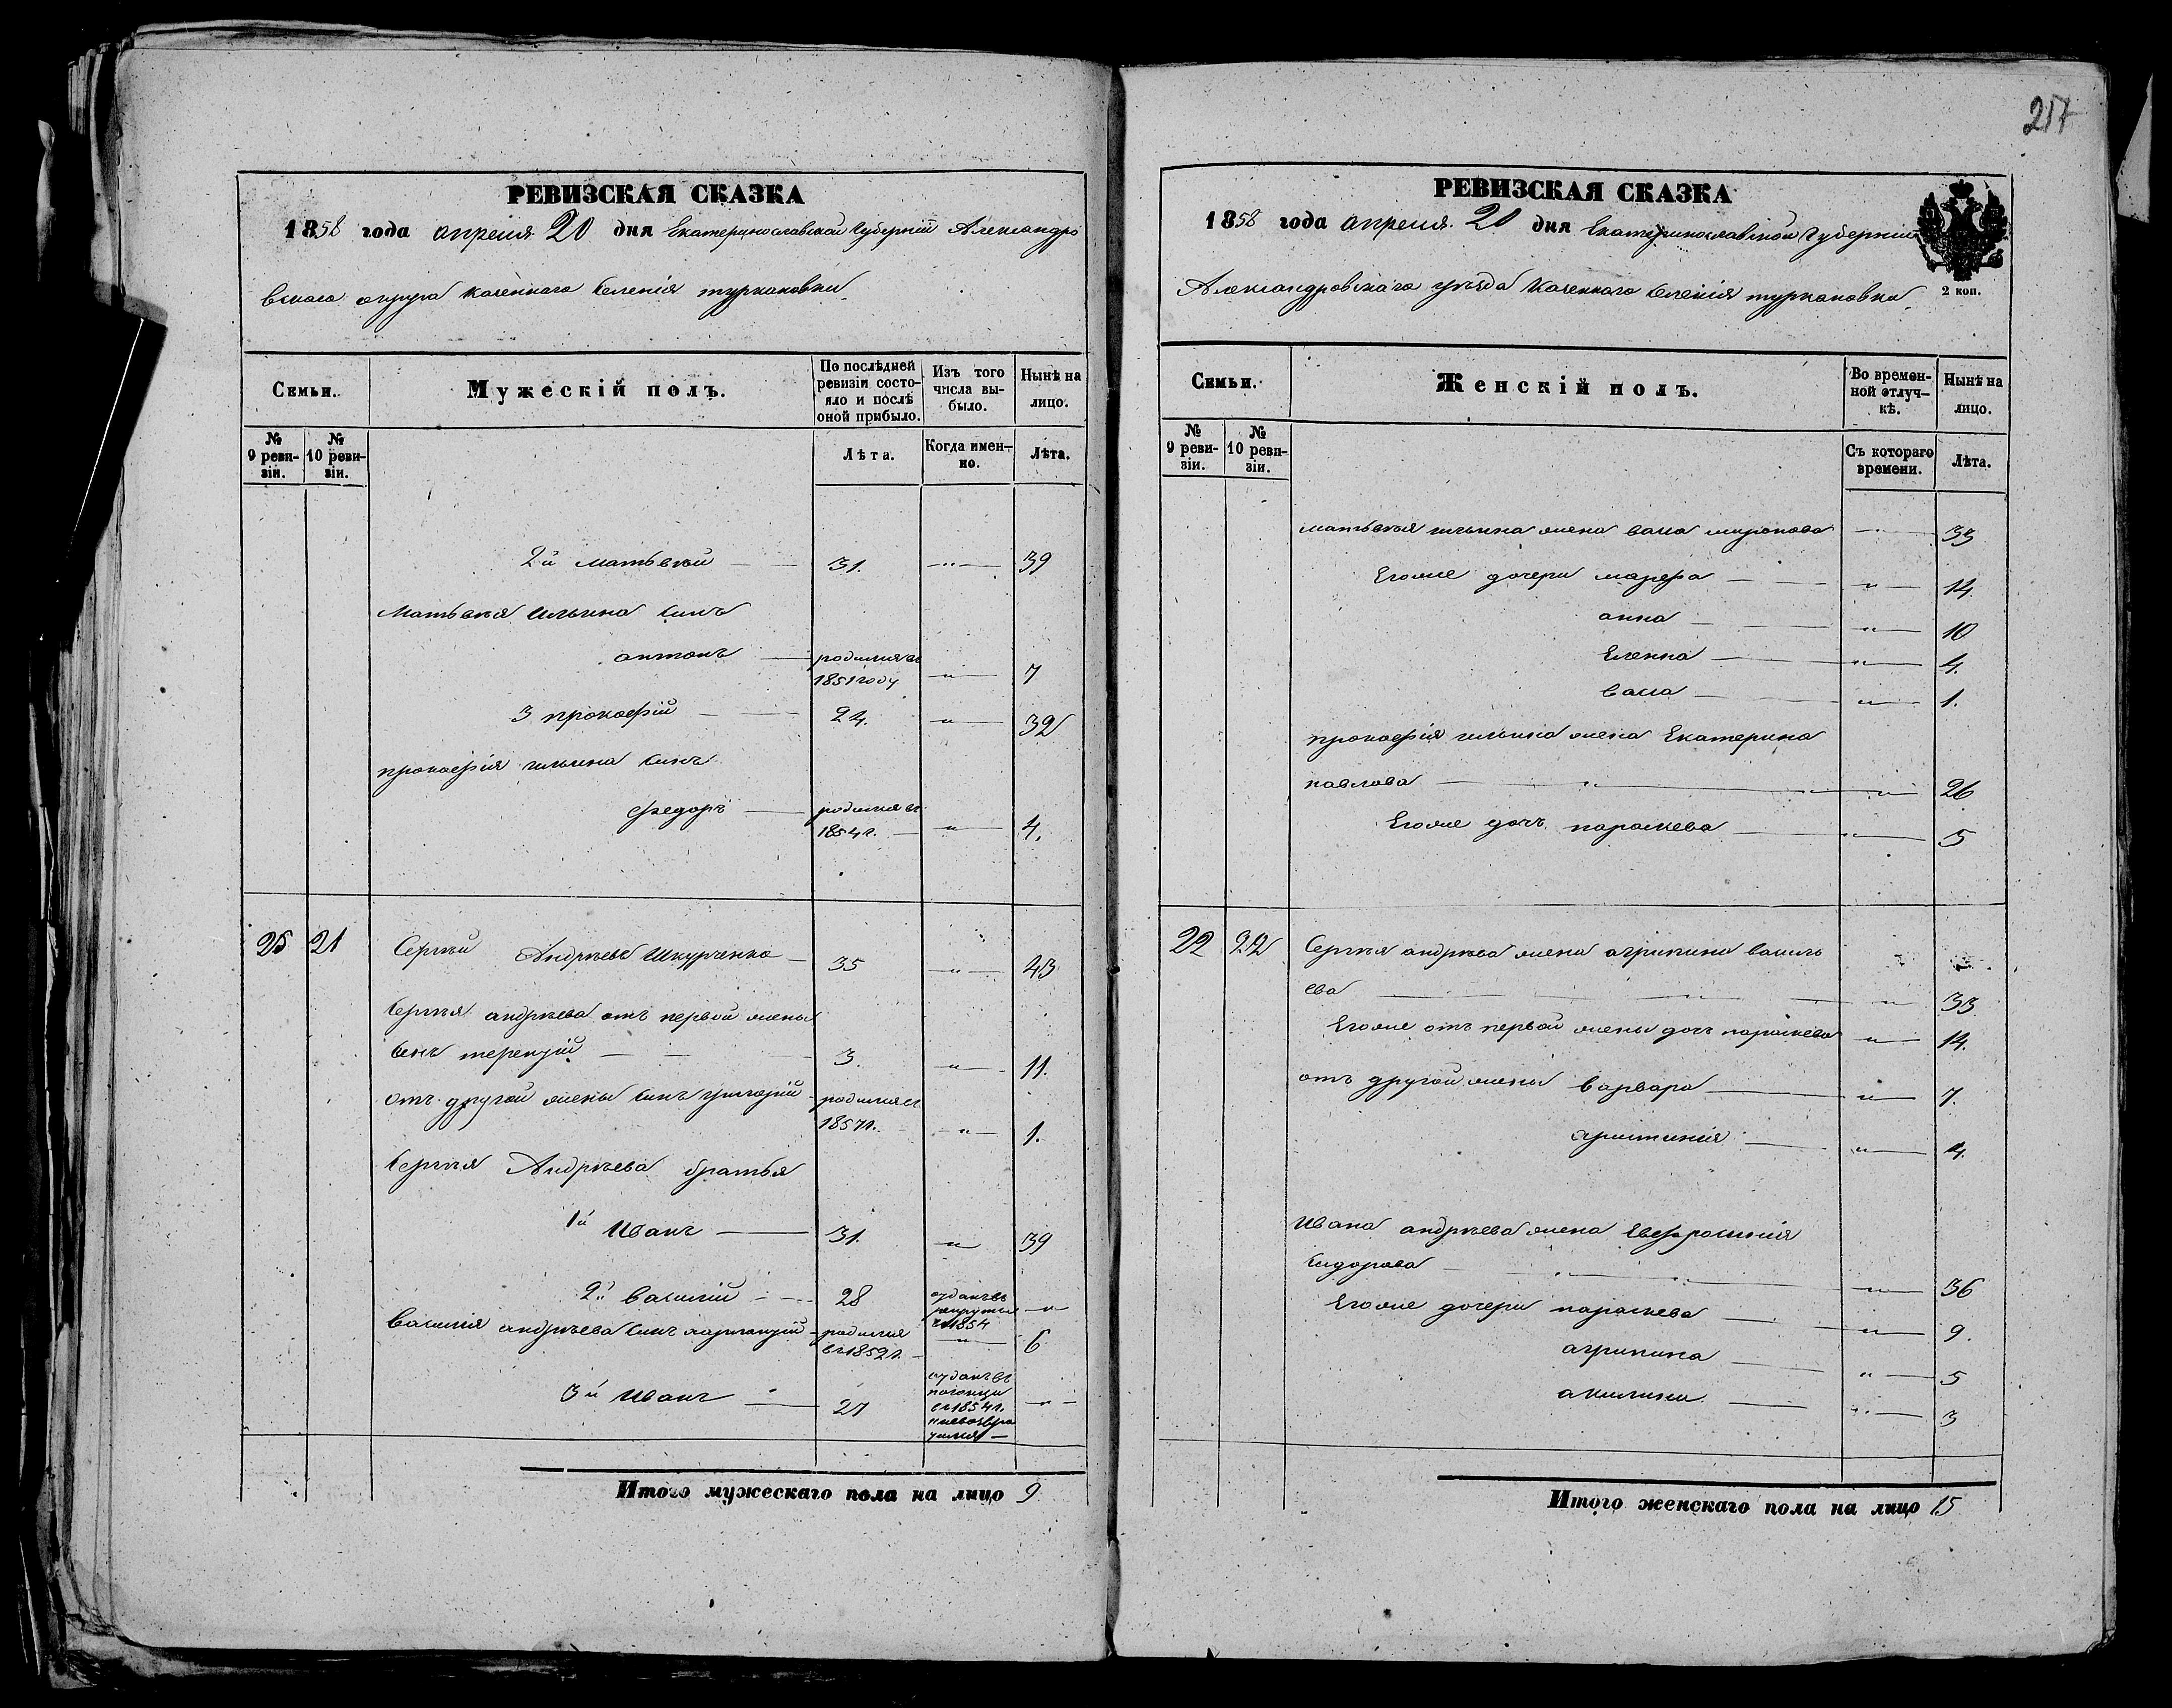 217
РЕВИЗСКАЯ СКАЗКА
1858 года апреля 20 дня Екатеринославской Губерніи Александро
вскаго округа казеннаго селенія туркановки
Семьи. Мужескій полъ. По послѣдней ревизіи состояло и послѣ оной прибыло. Изъ того числа выбыло. Нынѣ на лицо.
№ 9 ревизіи. № 10 ревизіи. Лѣта. Когда именно. Лѣта.
2й матвѣй 31. 39
Матвѣя Ильина сынъ
антонъ родился въ 1851 году " 7
3 прокофій 24. " 32
прокофія ильина сынъ
федоръ родился въ 1854 г. " 4.
25 21 Сергѣй Андрѣевъ Шкурченко 35 " 43
Сергѣя андрѣева отъ первой жены
сынъ терентій 3. " 11.
отъ другой жены сынъ григорій родился въ 1857 г. " 1.
Сергѣя Андрѣева братья
1й Иванъ 31. " 39
2й василій 28 отданъ въ рекруты въ 1854 "
василія андрѣева сынъ родился въ 1852 г. " 6
3й Иванъ 27 отданъ въ погонцы въ 1854 г. и невозвратился "
Итого мужескаго пола на лицо 9
РЕВИЗСКАЯ СКАЗКА
1858 года апреля 20 дня Екатеринославской Губерніи
Александровскаго уѣзда казеннаго селенія туркановки
2 коп.
Семьи. Женскій полъ. Во временной отлучкѣ. Нынѣ на лицо.
№ 9 ревизіи. № 10 ревизіи. Съ котораго времени. Лѣта.
матвѣя ильина жена васа миронова 33
Егоже дочери марфа " 14
анна " 10
Еленна " 4.
васа " 1.
прокофія ильина жена Екатерина
павлова " 26
Егоже дочь параскева " 5
22 22 Сергѣя андрѣева жена агрипина василь
ева " 33
Егоже отъ первой жены дочь параскева " 14.
отъ другой жены варвара " 7.
христинія " 4
Ивана андрѣева жена Евфросинія
Сидорова " 36
Егоже дочери параскева " 9.
агрипина " 5
акилина " 3
Итого женскаго пола на лицо 15